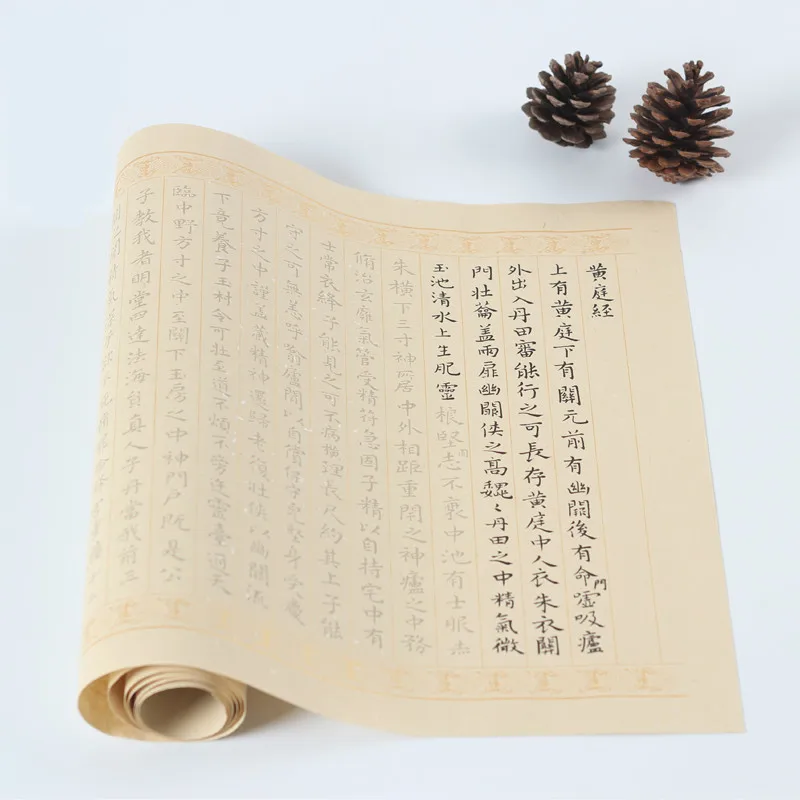 黃庭經
上有黃庭下有關元前有幽闕後有命門噓吸廬
外出入丹田審能行之可長存黃庭中人衣朱衣關
門壯蘥蓋兩扉幽闕俠之高魏〻丹田之中精氣微
玉池清水上生肥靈根堅志不衰中池有士服赤
朱橫下三寸神所居中外相距重閉之神廬之中務
脩治玄癰氣管受精符急固子精以自持宅中有
士常衣絳子能見之可不病橫理長尺約其上子能
守之可無恙呼翕廬間以自償保守完堅身受慶
方寸之中謹蓋藏精神還歸老復壯俠以幽闕流
下竟養子玉樹令可壯至道不煩不旁迕靈臺通天
臨中野方寸之中至關下玉房之中神門戶既是公
子教我者明堂四達法海員真人子丹當我前三